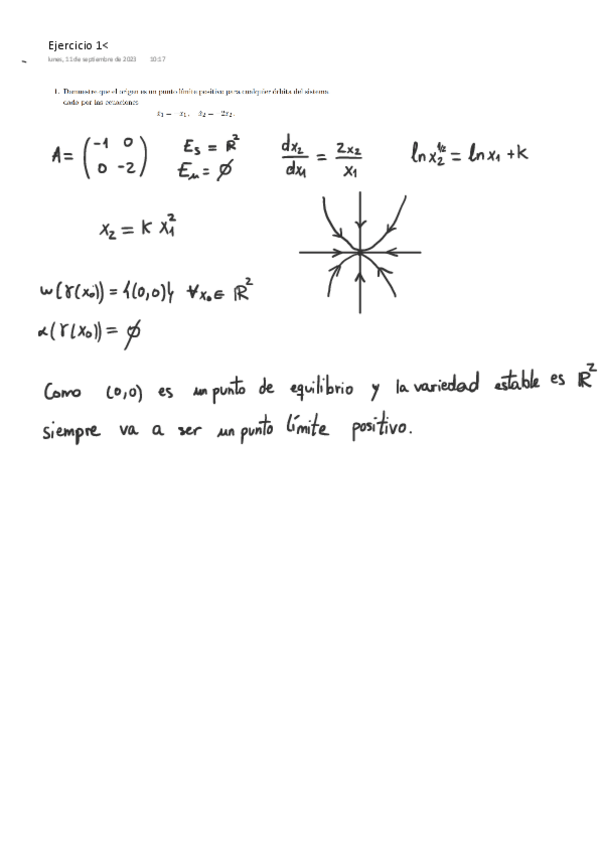 Ejercicio 1<
lunes, 11 de septiembre de 2023 10:17
1. Demuestre que el origen es un punto límite positivo para cualquier órbita del sistema
dado por las ecuaciones
ẋ₁ = -x₁, ẋ₂ = -2x₂.
A= (-1 0 Es = ℝ² dx₂/dx₁ = 2x₂/x₁ ln x₂^½ = ln x₁ + k
0 -2) Eu = ∅
x₂ = K x₁²
w(γ(x₀)) = {(0,0)} ∀x₀ ∈ ℝ²
α(γ(x₀)) = ∅
Como (0,0) es un punto de equilibrio y la variedad estable es ℝ²
siempre va a ser un punto límite positivo.